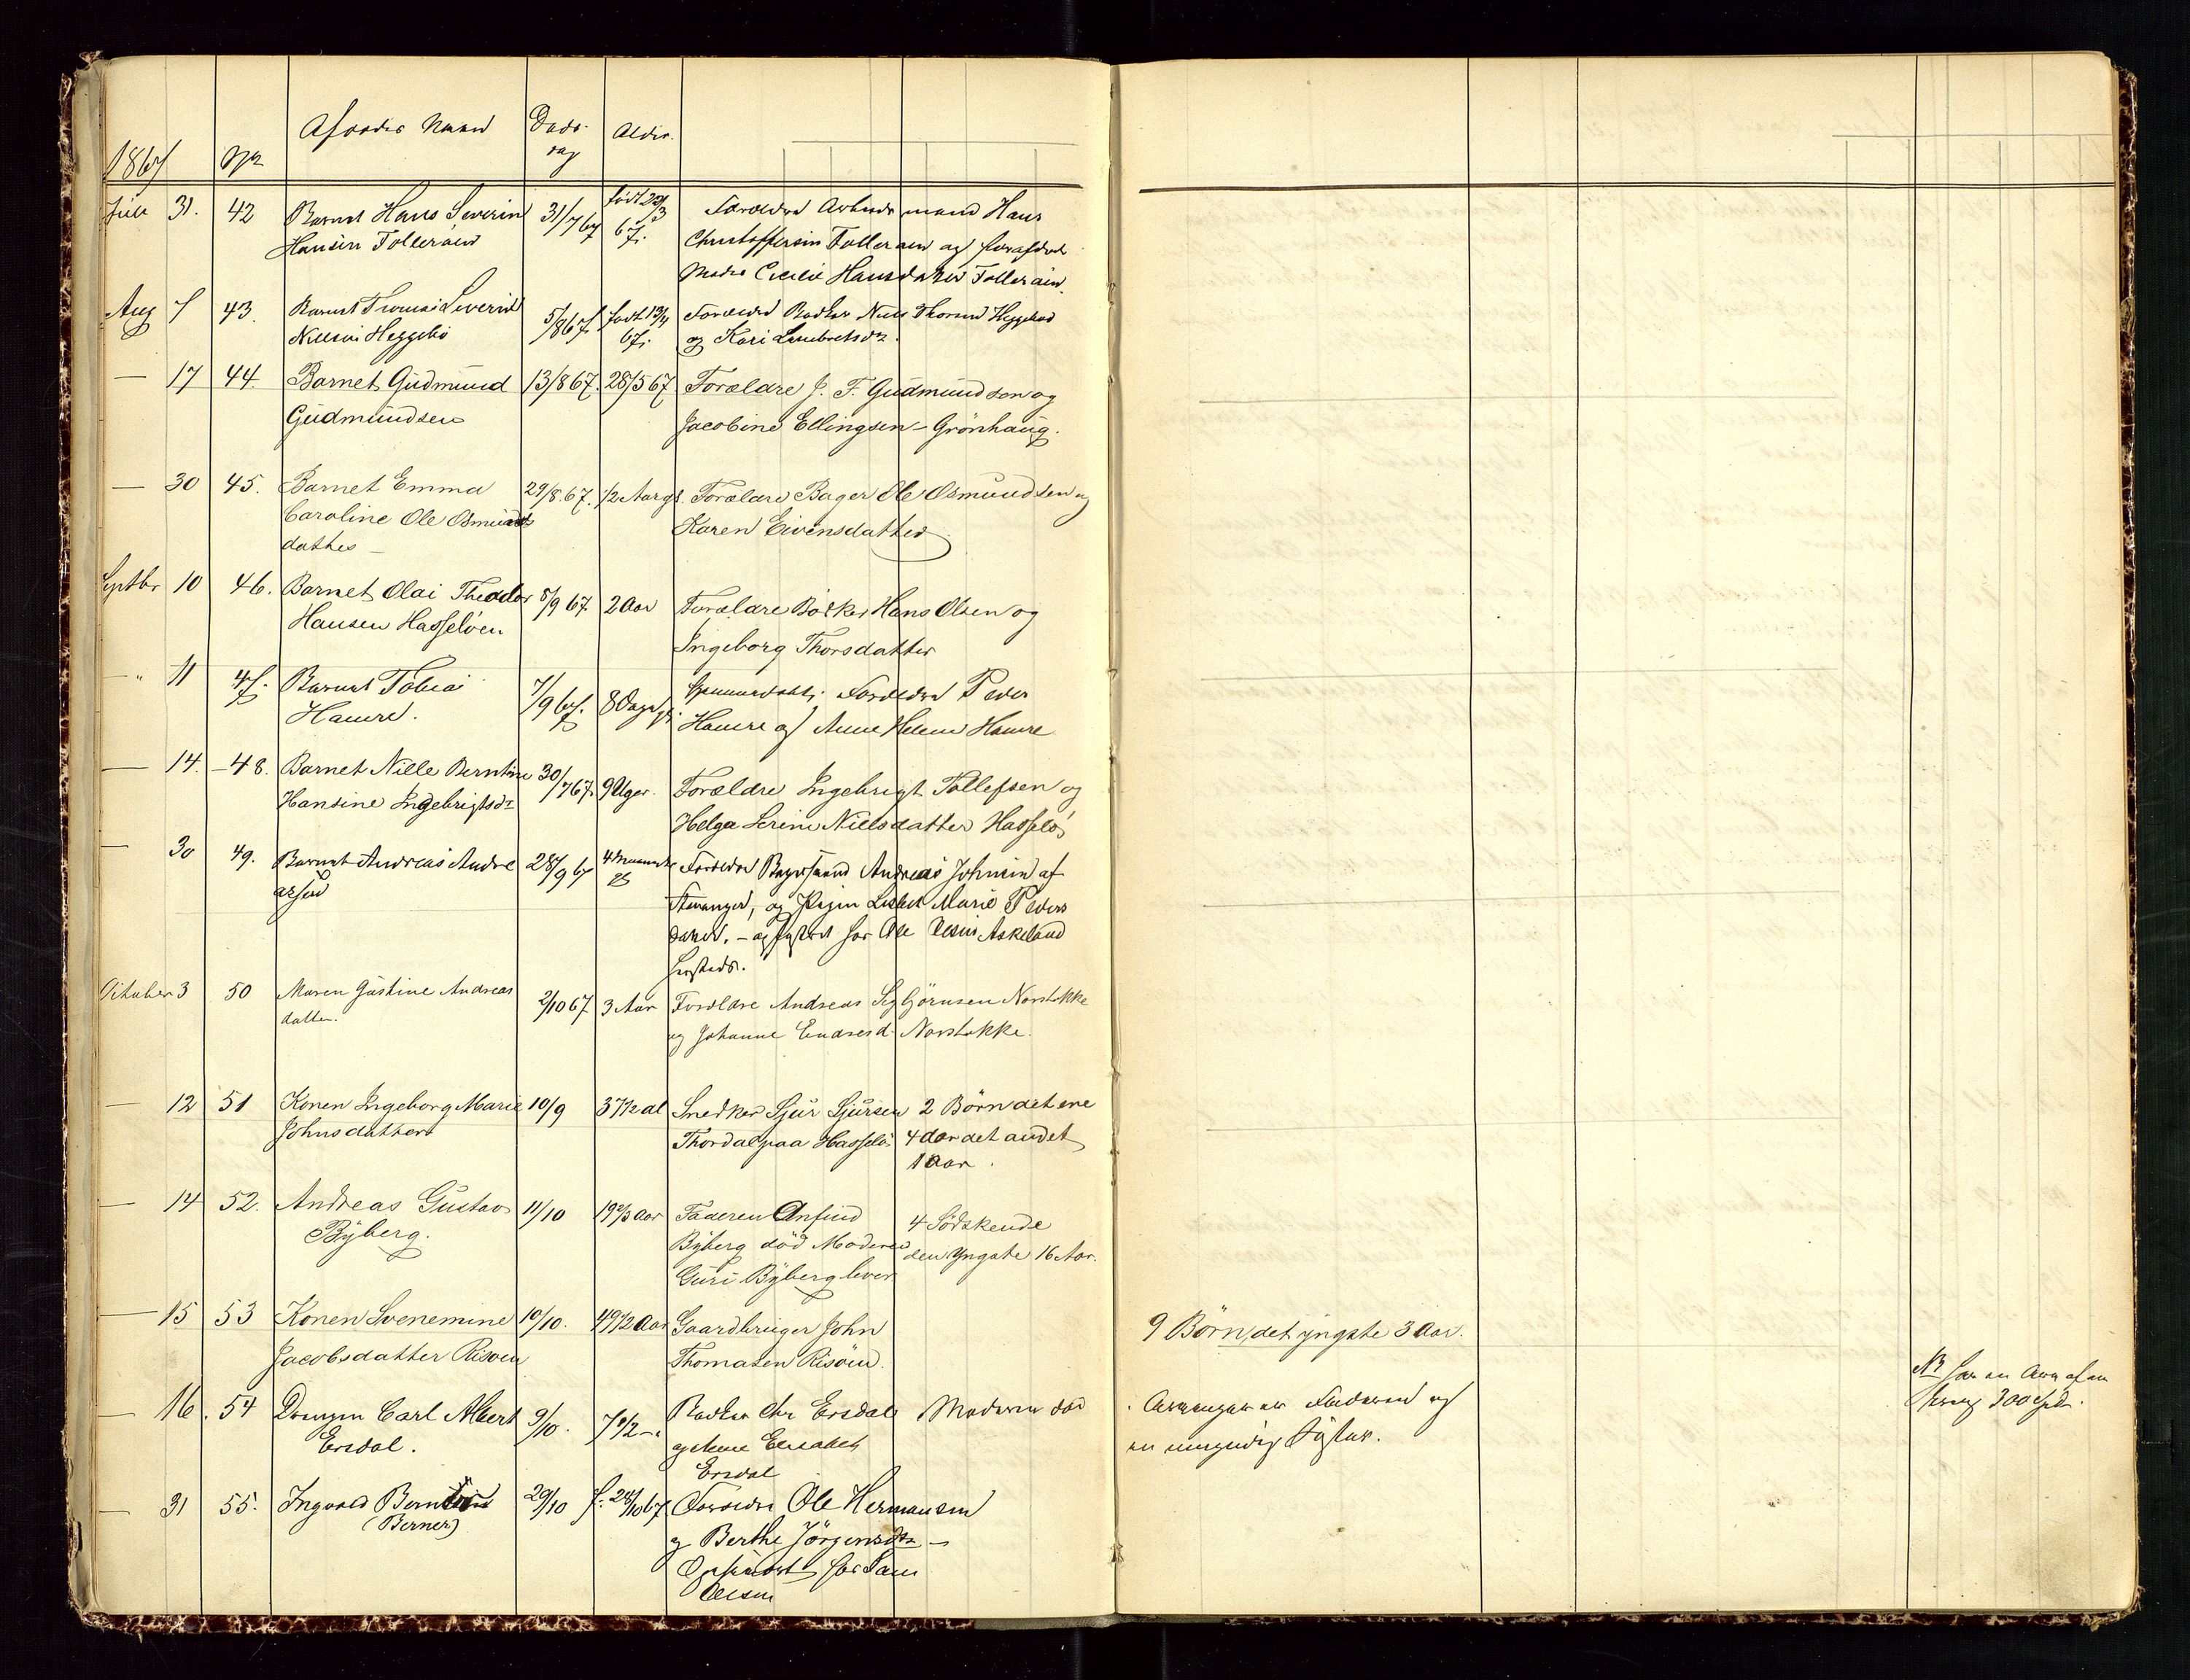 1867 No Afdødes Navn Døds- Alder.
dag
Juli 31. 42 Barnet Hans Severin 31/7 67 født 22/3
Hansen Tolleraen 67.
Forældre Arbeidsmand Hans
Christoffersen Tolleraen og
Moder Cecilie Hansdatter Tolleraen.
Aug 7 43. Barnet Thomas Severin 5/8 67. født 13/4 Forældre Nils Thorsen
Nilsen Heggebø 67. og Kari Lambretsdr.
— 17 44. Barnet Gudmund 13/8 67. 28/5 67. Forældre J. F. Gudmundson og
Gudmundsen Jacobine Ellingsen - Grönhaug.
— 30 45. Barnet Emma 29/8. 67. 1/2 Aar gl. Forældre Bager Ole Osmundsen og
Caroline Ole Osmunds Karen Eivensdatter
datter —
Septbr 10 46. Barnet Olai Theodor 8/9 67. 2 Aar Forældre Bødker Hans Olsen og
Hansen Hasseløen Ingeborg Thorsdatter
— " 11 47. Barnet Tobias 7/9 67. 8 Dage gl. Forældre Peder
Hamre. Hamre og Anne Helene Hamre
— 14. — 48. Barnet Nille Berntine 30/7 67. 9 Uger. Forældre Ingebrigt Tollefsen og
Hansine Ingebrigtsdr Helga Serine Nielsdatter Hasselø
— 30 49. Barnet Andreas Andre 28/9 67 4 Maaneder Forældre Andreas Johnsen af
asen gl
Stavanger, og Pigen Lisbet Marie Peders
datter. — og for Ole Olsen Askeland
Oktober 3 50 Maren Gustine Andreas 2/10 67 3 Aar Forældre Andreas Sigbjørnsen Norstokke
datter. og Johanne Endresd. Norstokke.
— 12 51 Konen Ingeborg Marie 10/9 37 1/2 al Snedker Sjur Sjursen 2 Börn det ene
Johnsdatter Thordal paa Hasselø 4 Aar det andet
1 Aar.
— 14 52. Andreas Gustav 11/10 19 2/3 Aar Faderen Anfind 4 Södskende
Byberg. Byberg död Moderen den Yngste 16 Aar.
Guri Byberg lever
— 15 53 Konen Svenemine 10/10. 49 1/2 Aar Gaardbruger John 9 Börn, det yngste 3 Aar.
Jacobsdatter Risøen Thomasen Risöen.
— 16. 54 Drengen Carl Albert 9/10. 7 1/2 — Chr Ersdal Moderen död
Ersdal. og Anne Elisabet
Ersdal
Arvinger er Faderen og
en umyndig Søster.
NB har en Arv af en
300 Spd.
— 31 55. Ingvald 29/10 f. 24/10 67 Forældre Ole Hermansen
(Berner) og Berthe Jörgensdtr —
Opfostret hos Lars
Olsen